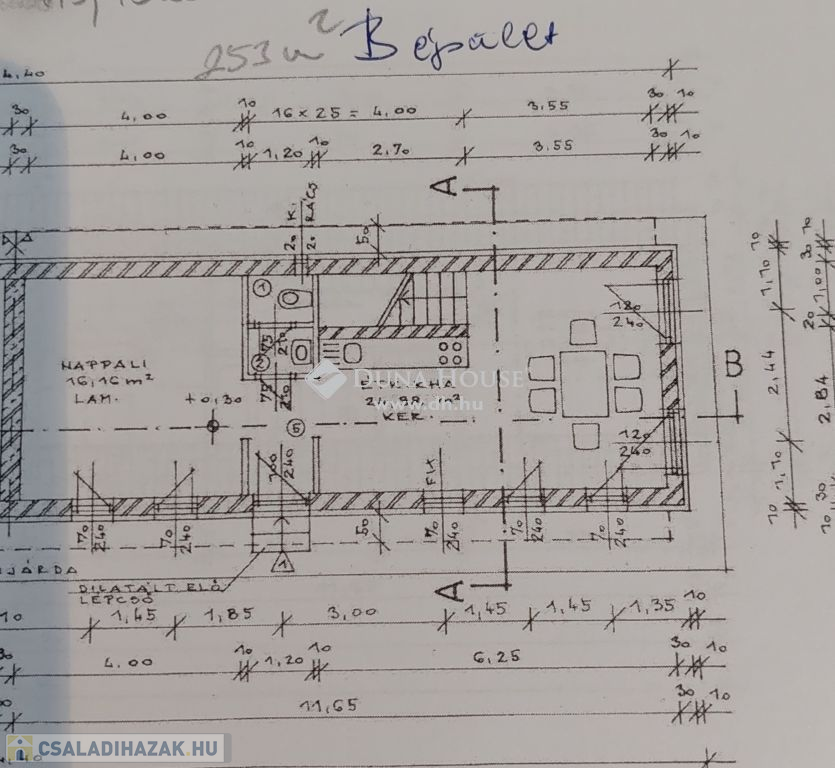 253 m² Beépület
4,40
30 4,00 10 16 x 25 = 4,00 3,55 30 10
30 4,00 10 1,20 10 2,70 3,55 30 10
A
K.
RÁCS
20 20
50
1
75 210
75 210
NAPPALI
16,16 m²
LAM.
+0,30
5
DUNA HOUSE
www.dh.hu
ÉTK.KHA
24,88 m²
KER.
120
240
120
240
B
10 1,10 2,44 1,10 10
10 30 1,00 20 2,84 30 10
100
240
FIX
70
240
70
240
50
70
240
70
240
70
240
1
JÁRDA
DILATÁLT ELŐ
LÉPCSŐ
A
10 1,45 1,85 3,00 1,45 1,45 1,35 10
30 4,00 10 1,20 10 6,25 30 10
11,65 30 10
CSALADIHAZAK.HU